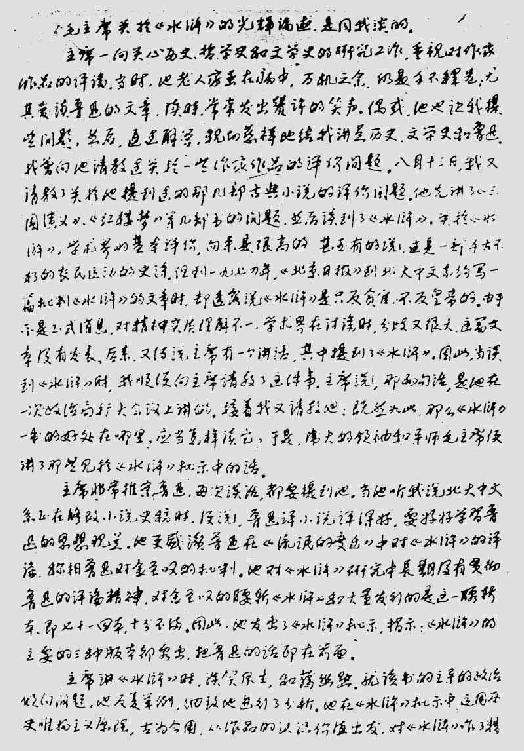 毛主席关于《水浒》的光辉论述,是因我读的。
主席一向关心历史、哲学史和文学史的研究工作,重视对作家
作品的评论。当时,他老人家虽在病中,万机之余,仍是手不释卷,尤
其爱读鲁迅的文章,读时,常常发出赞许的笑声。偶或,他也让我提
些问题,然后,通过解答,亲切慈祥地给我讲些历史、文学史和鲁迅。
我曾向他请教过关于一些作家作品的评价问题。八月十三日,我又
请教了关于他提到过的那几部古典小说的评价问题。他先讲了《三
国演义》、《红楼梦》等几部书的问题,然后谈到了《水浒》。关于《水
浒》,学术界的基本评价,向来是很高的,甚至有的说,这是一部千古不
朽的农民运动的史诗,但到一九七四年,《北京日报》到北大中文系约写一
篇批判《水浒》的文章时,却透露说《水浒》是只反贪官,不反皇帝的。由于
不是正式消息,对精神实质理解不一,学术界在讨论时,分歧又很大,这篇文
章没有发表。后来,又传说主席有一个讲话,其中提到了《水浒》。因此,当谈
到《水浒》时,我顺便向主席请教了这件事。主席说,那两句话,是他在
一次政治局扩大会议上讲的。接着我又请教他:既然如此,那么《水浒》
一书的好处在哪里,应当怎样读它?于是,伟大的领袖和导师毛主席便
讲了那些见于《水浒》批示中的话。
主席非常推崇鲁迅,两次谈话,都要提到他。当他听我说北大中文
系正在修改小说史稿时,便说,鲁迅评小说评得好,要好好学习鲁
迅的思想观点。他更感谢鲁迅在《流氓的变迁》中对《水浒》的评
论,称相鲁迅对金圣叹的批判。他对《水浒》研究中长期没有贯彻
鲁迅的评论精神,对金圣叹的腰斩《水浒》和大量发行的是这一腰斩
本,即七十一回本,十分不满。因此,他发出了《水浒》批示,指示:《水浒》的
主要的三种版本都要出,把鲁迅的话印在前面。
主席讲《水浒》时,谈笑风生,
倾向问题,他反复举例,细致地进行了分析。他在《水浒》批示中,运用历
史唯物主义原理,古为今用,从作品的认识价值出发,对《水浒》作了精